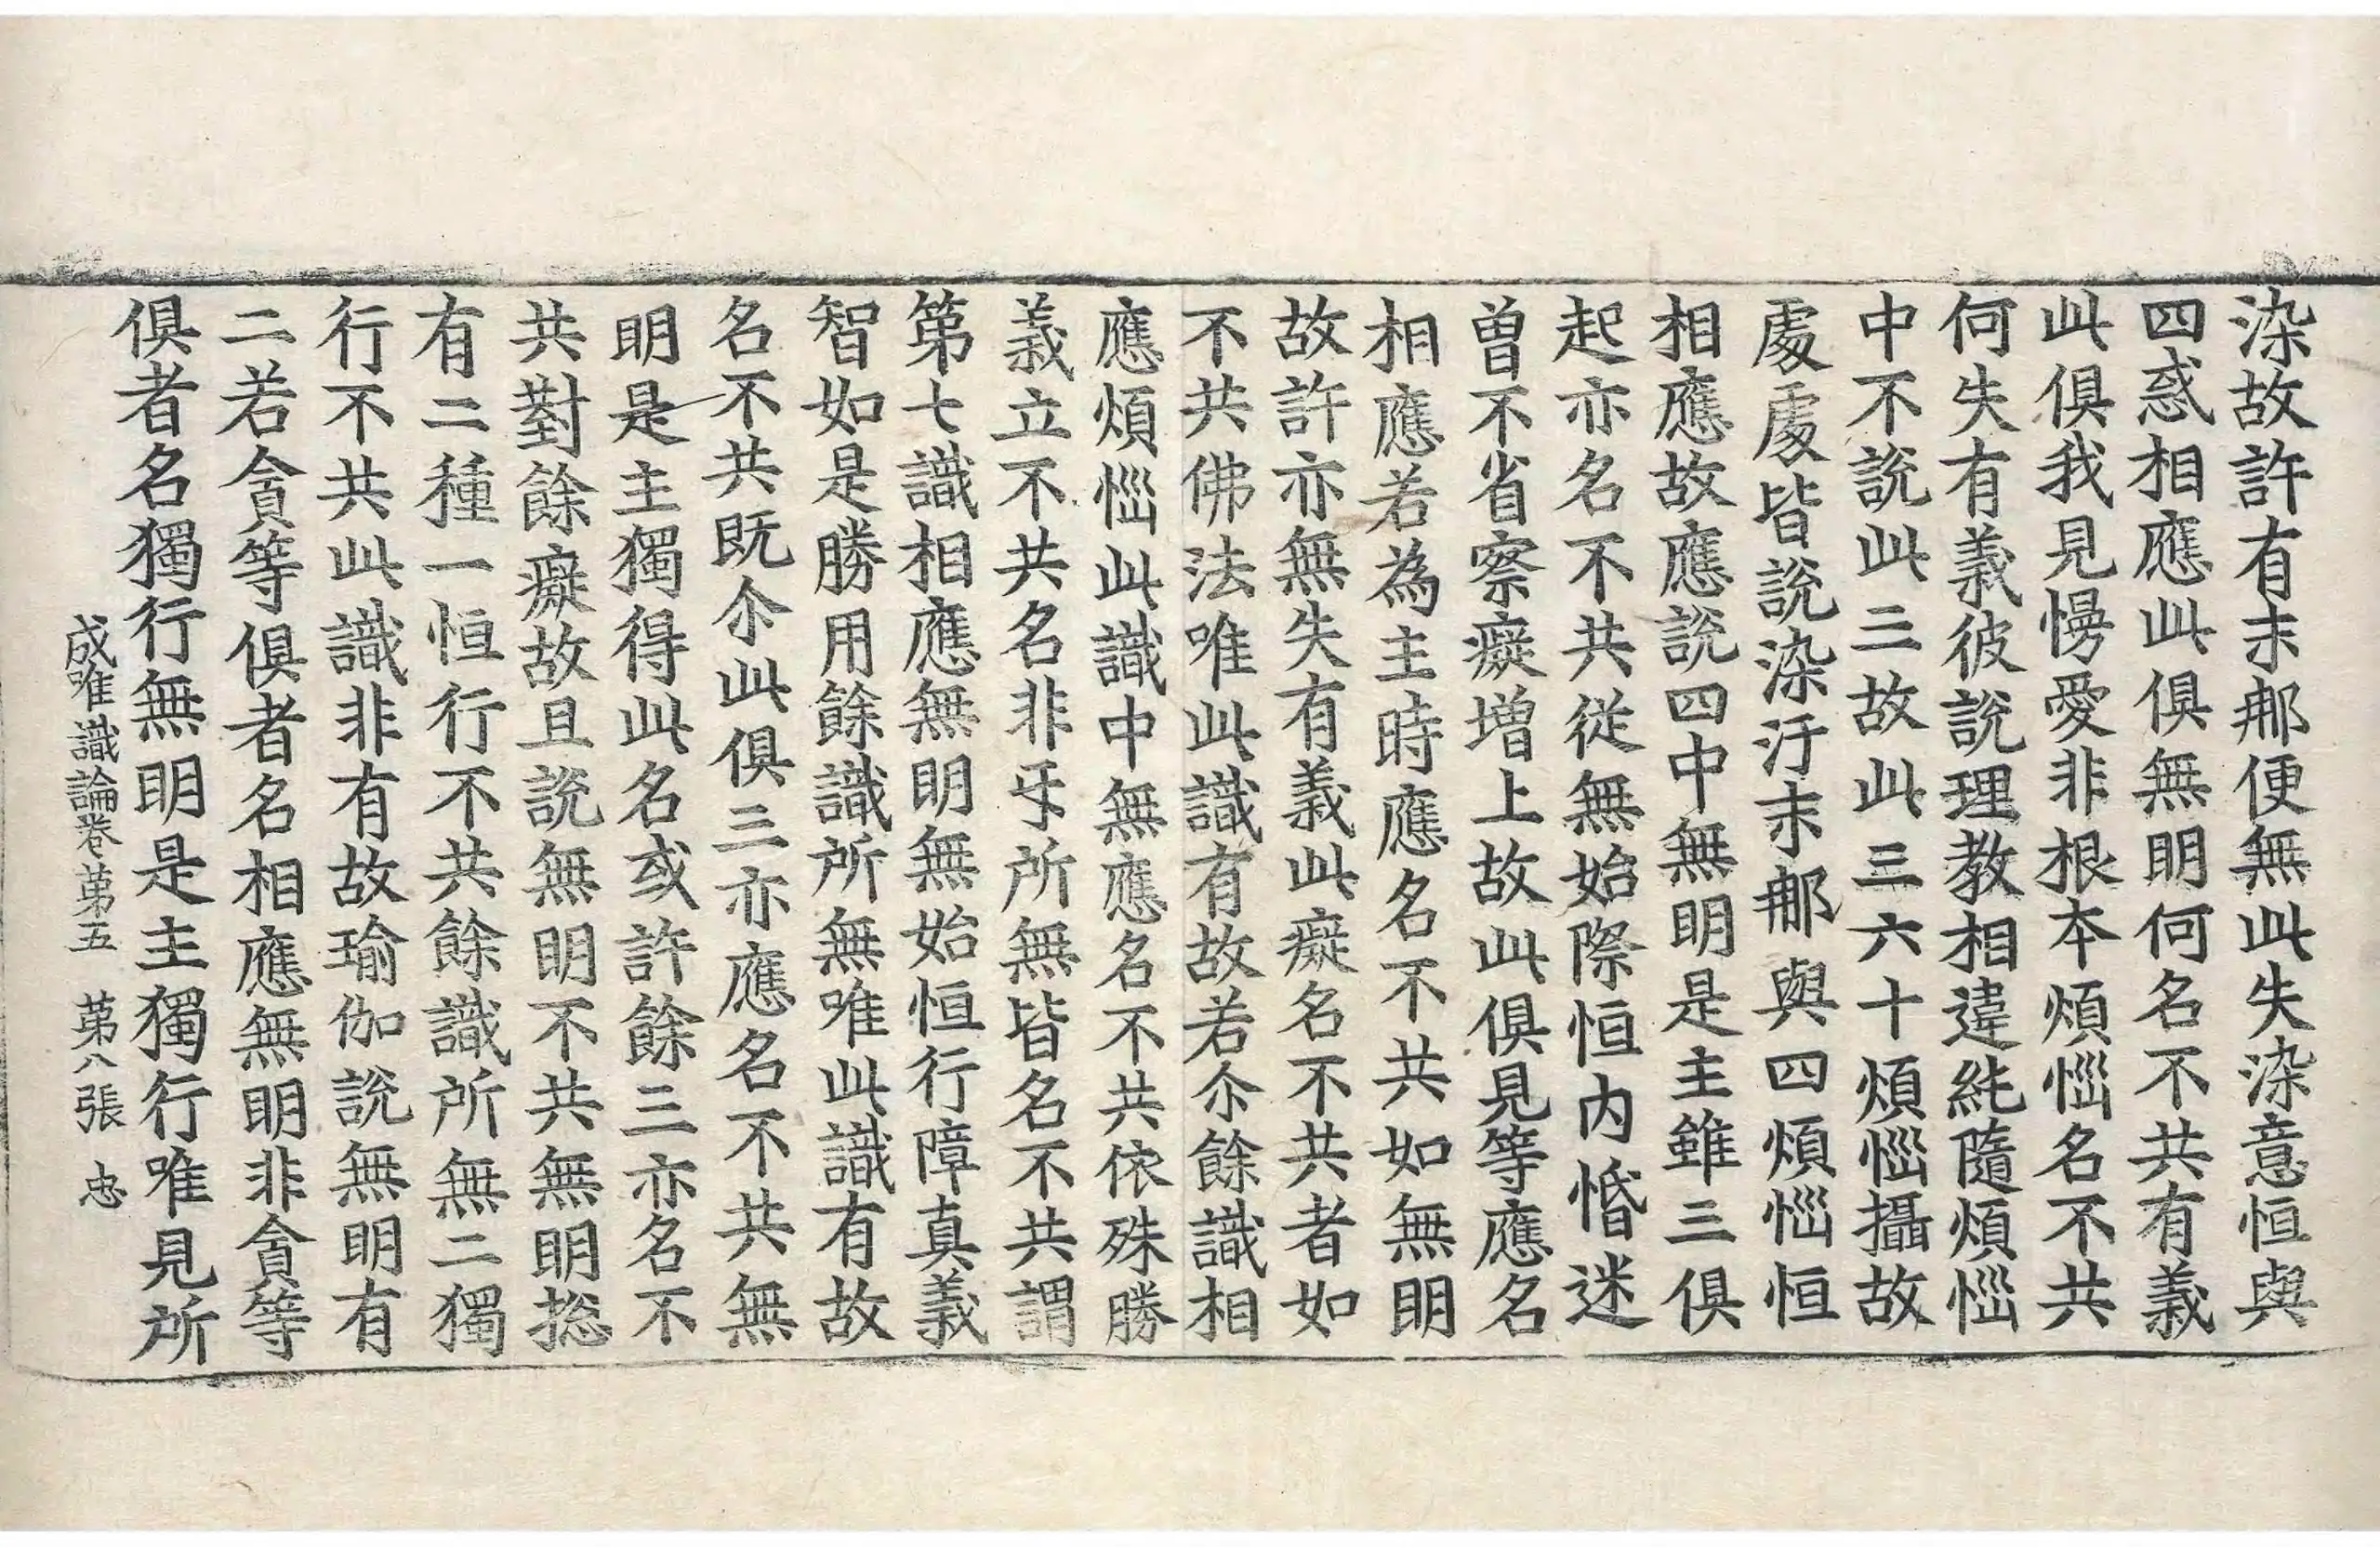 染故許有末那便無此失染意恒與
四惑相應此俱無明何名不共有義
此俱我見慢愛非根本煩惱名不共
何失有義彼說理教相違純隨煩惱
中不說此三故此三六十煩惱攝故
處處皆說染汙末那與四煩惱恒
相應故應說四中無明是主雖三俱
起亦名不共從無始際恒内惛迷
曾不省察癡增上故此俱見等應名
相應若為主時應名不共如無明
故許亦無失有義此癡名不共者如
不共佛法唯此識有故若尒餘識相
應煩惱此識中無應名不共依殊勝
義立不共名非㸦所無皆名不共謂
第七識相應無明無始恒行障真義
智如是勝用餘識所無唯此識有故
名不共既尒此俱三亦應名不共無
明是主獨得此名或許餘三亦名不
共對餘癡故且說無明不共無明揔
有二種一恒行不共餘識所無二獨
行不共此識非有故瑜伽說無明有
二若貪等俱者名相應無明非貪等
俱者名獨行無明是主獨行唯見所
成唯識論卷第五 第八張 忠